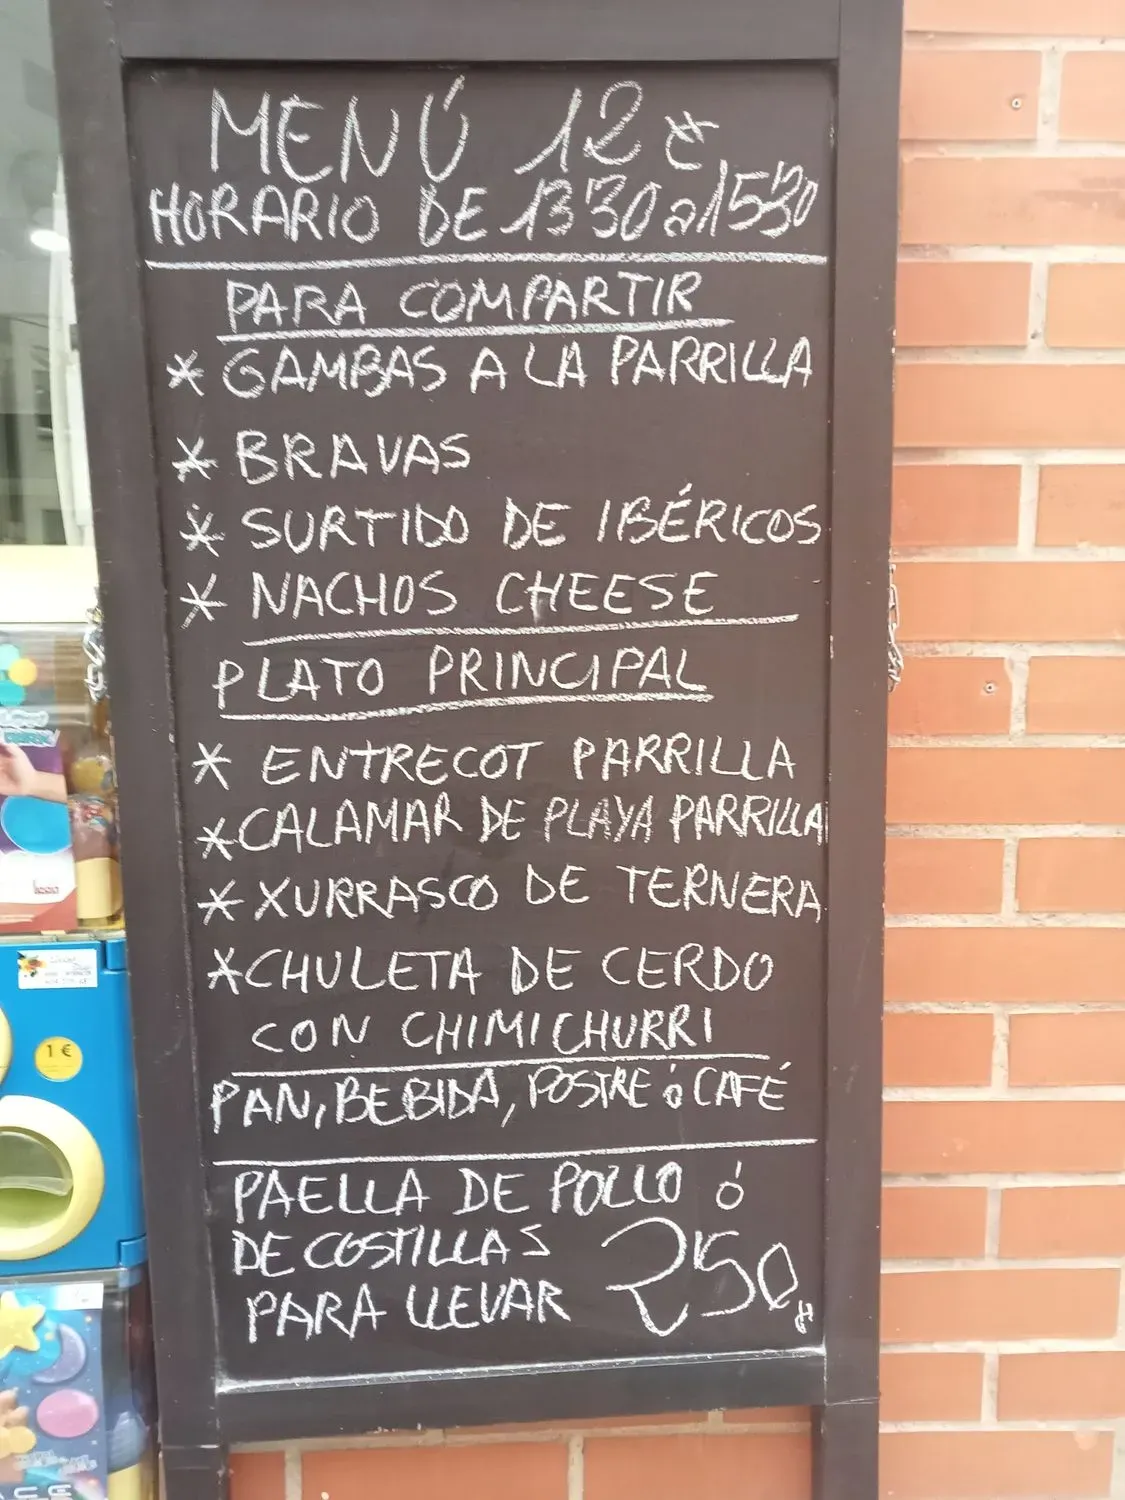 MENÚ 12 €
HORARIO DE 13'30 a 15'30
PARA COMPARTIR
* GAMBAS A LA PARRILLA
* BRAVAS
* SURTIDO DE IBÉRICOS
* NACHOS CHEESE
PLATO PRINCIPAL
* ENTRECOT PARRILLA
* CALAMAR DE PLAYA PARRILLA
* XURRASCO DE TERNERA
* CHULETA DE CERDO
CON CHIMICHURRI
PAN, BEBIDA, POSTRE ó CAFÉ
PAELLA DE POLLO ó
DE COSTILLAS
PARA LLEVAR 2'50 €
1 €